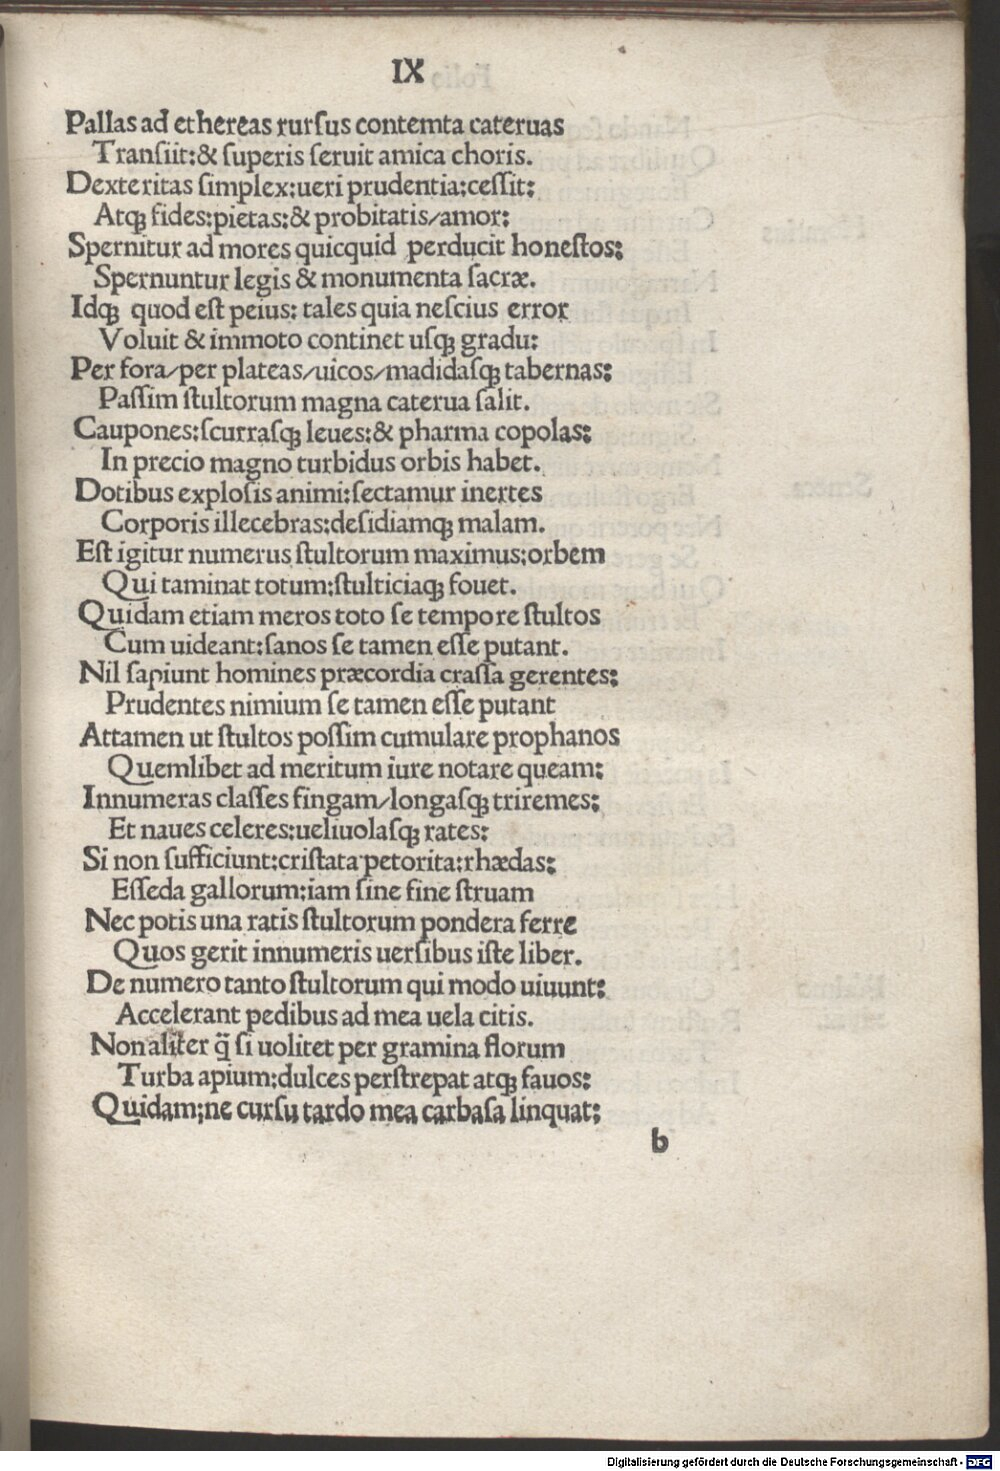 IX
Pallas ad ethereas rursus contemta cateruas
Transiit:& superis seruit amica choris.
Dexteritas simplex:ueri prudentia:cessit:
Atqꝫ fides:pietas:& probitatis/amor:
Spernitur ad mores quicquid perducit honestos:
Spernuntur legis & monumenta sacræ.
Idqꝫ quod est peius: tales quia nescius error
Voluit & immoto continet usqꝫ gradu:
Per fora/per plateas/uicos/madidasqꝫ tabernas:
Passim stultorum magna caterua salit.
Caupones:scurrasqꝫ leues:& pharma copolas:
In precio magno turbidus orbis habet.
Dotibus explosis animi:sectamur inertes
Corporis illecebras:desidiamqꝫ malam.
Est igitur numerus stultorum maximus:orbem
Qui taminat totum:stulticiaqꝫ fouet.
Quidam etiam meros toto se tempore stultos
Cum uideant:sanos se tamen esse putant.
Nil sapiunt homines præcordia crassa gerentes:
Prudentes nimium se tamen esse putant
Attamen ut stultos possim cumulare prophanos
Quemlibet ad meritum iure notare queam:
Innumeras classes fingam/longasqꝫ triremes:
Et naues celeres:ueliuolasqꝫ rates:
Si non sufficiunt:cristata petorita:rhædas:
Esseda gallorum:iam sine fine struam
Nec potis una ratis stultorum pondera ferre
Quos gerit innumeris uersibus iste liber.
De numero tanto stultorum qui modo uiuunt:
Accelerant pedibus ad mea uela citis.
Non aliter q̃ si uolitet per gramina florum
Turba apium:dulces perstrepat atqꝫ fauos:
Quidam:ne cursu tardo mea carbasa linquat:
b
Digitalisierung gefördert durch die Deutsche Forschungsgemeinschaft - DFG